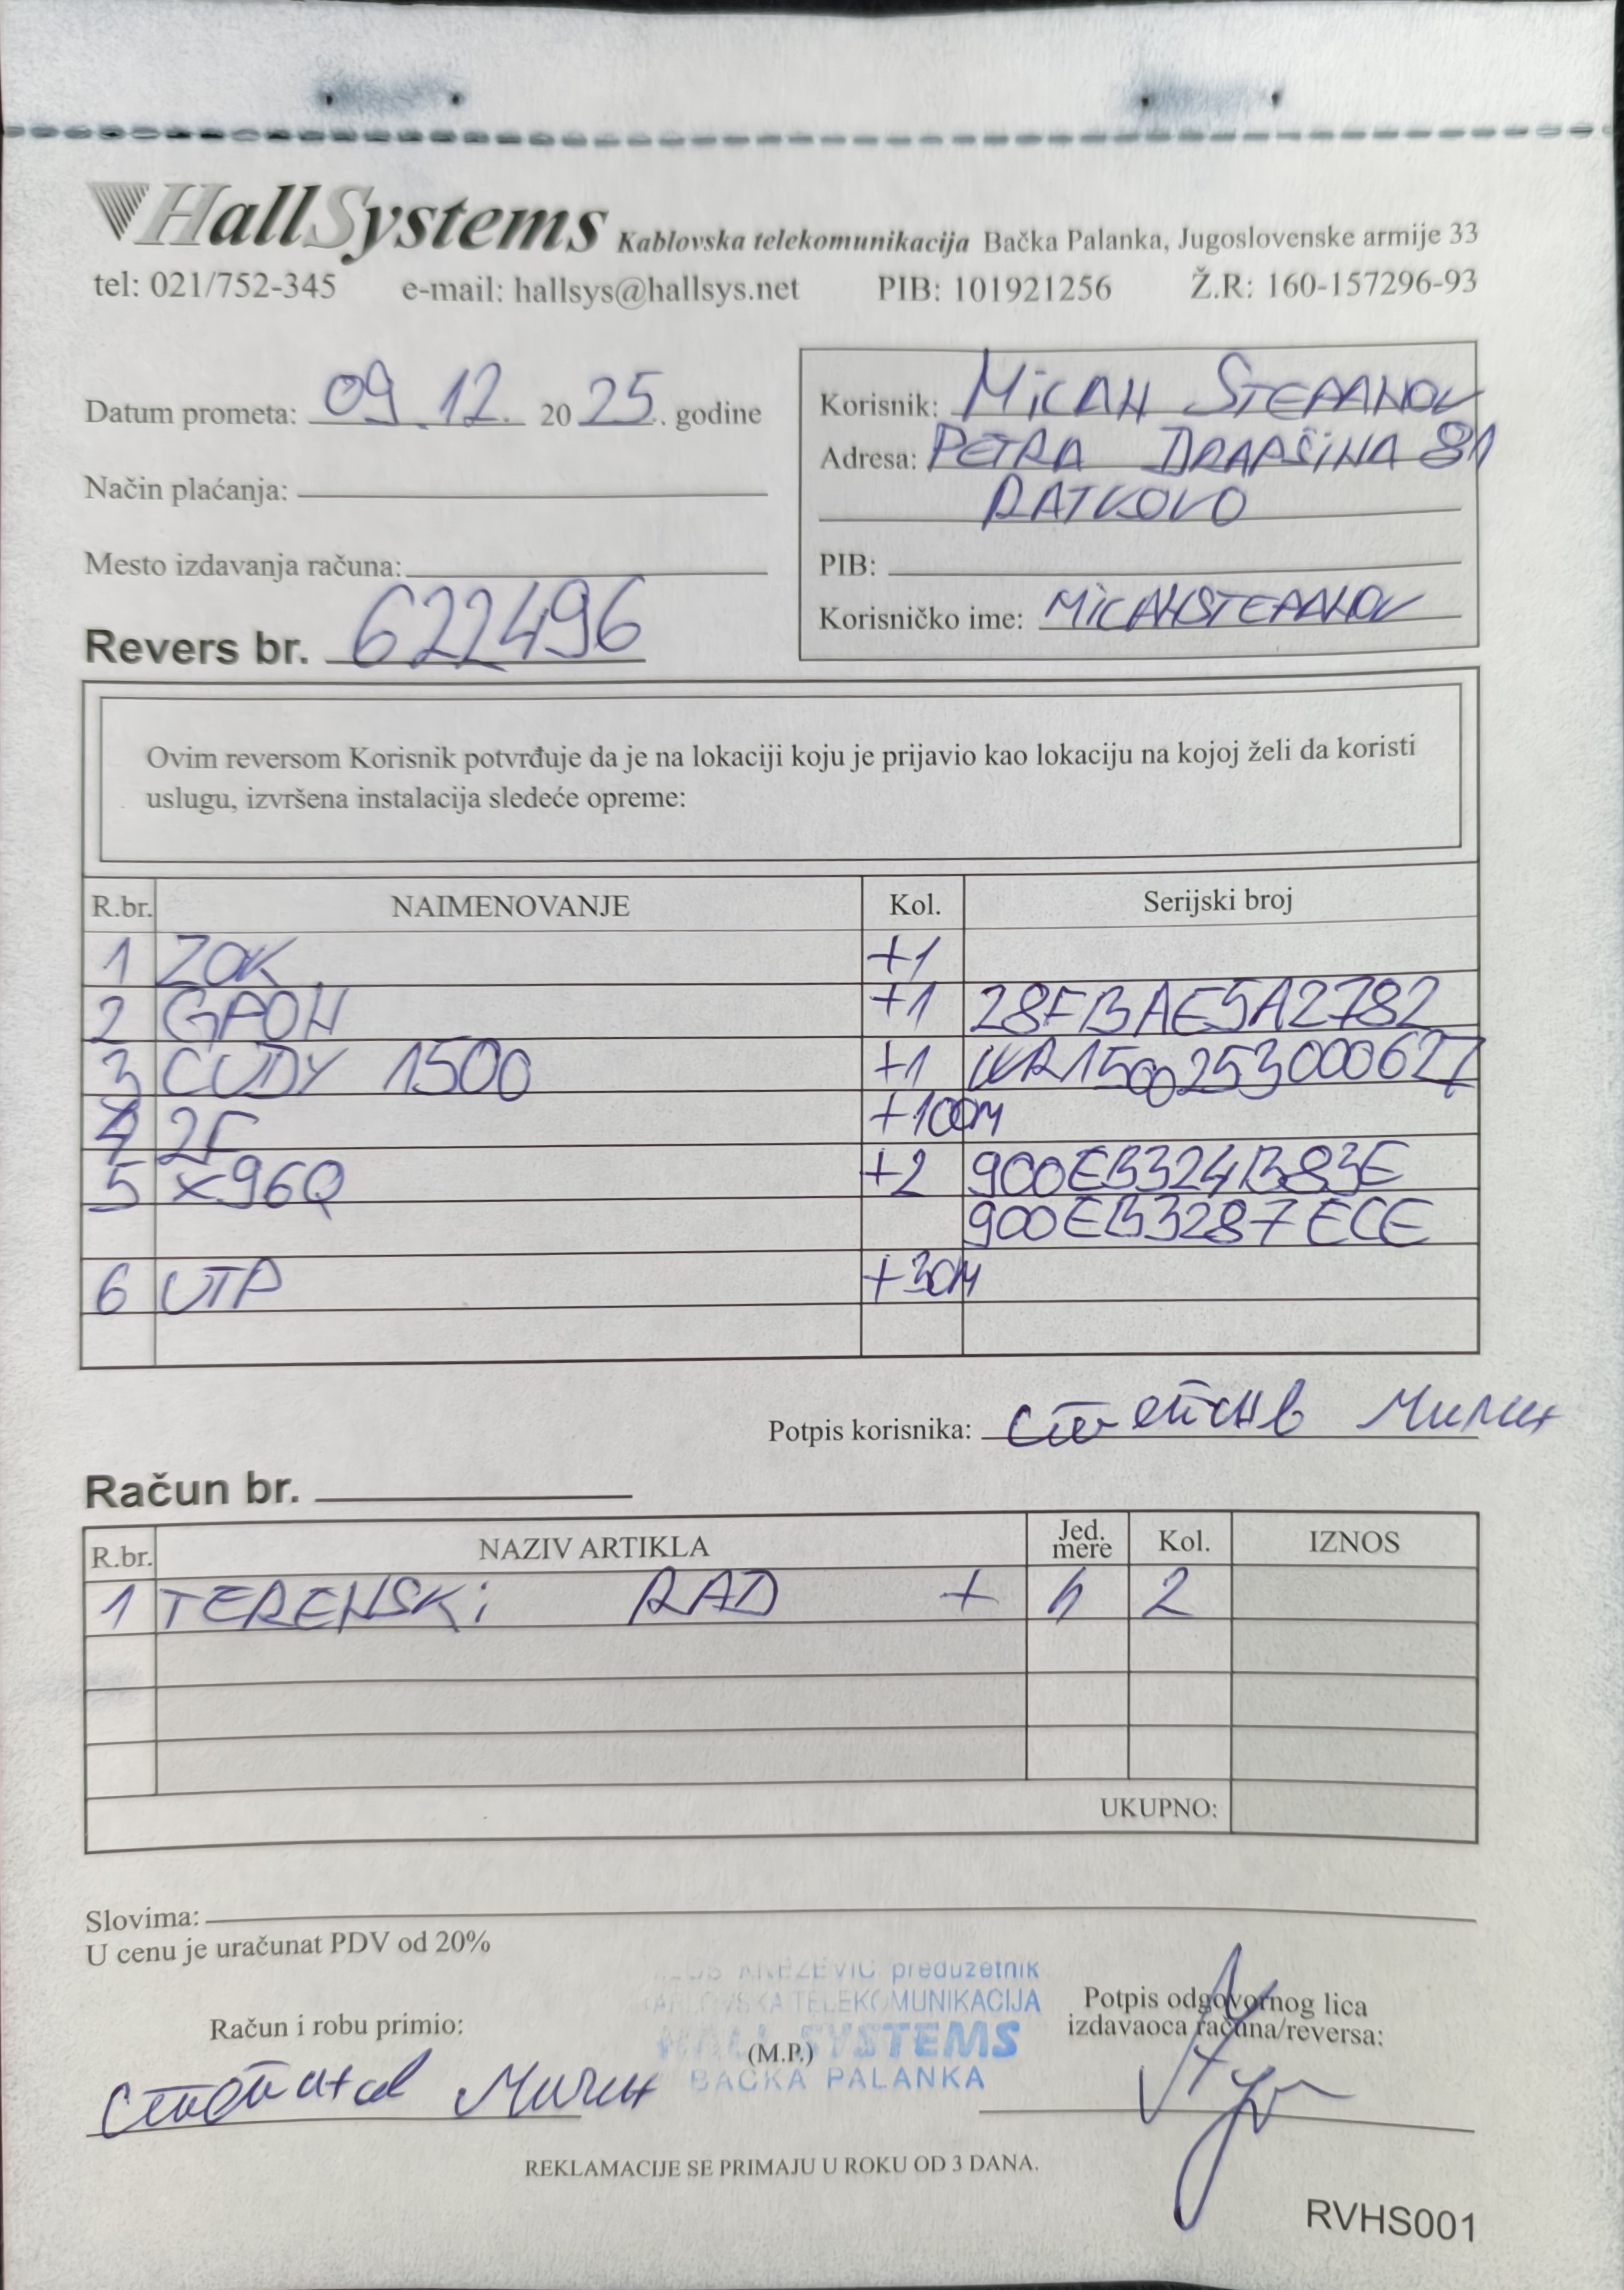 HallSystems Kablovska telekomunikacija Bačka Palanka, Jugoslovenske armije 33
tel: 021/752-345 e-mail: hallsys@hallsys.net PIB: 101921256 Ž.R: 160-157296-93
Datum prometa: 09.12. 2025. godine
Način plaćanja:
Mesto izdavanja računa:
Revers br. 622496
Korisnik: MiCAH STEPANOV
Adresa: PETRA DRAPŠiNA 81
RATKOVO
PIB:
Korisničko ime: MiCAHSTEPANOV
Ovim reversom Korisnik potvrđuje da je na lokaciji koju je prijavio kao lokaciju na kojoj želi da koristi
uslugu, izvršena instalacija sledeće opreme:
R.br. NAIMENOVANJE Kol. Serijski broj
1 ZOK +1
2 GPON +1 28FBAE5A2782
3 CUDY 1500 +1 WR1500253000627
4 2F +100M
5 X96Q +2 900EB324B83E
900EB3287ECE
6 UTP +30M
Potpis korisnika:
Račun br.
R.br. NAZIV ARTIKLA Jed. mere Kol. IZNOS
1 TERENSKi RAD + h 2
UKUPNO:
Slovima:
U cenu je uračunat PDV od 20%
KNEZEVIC preduzetnik
KABLOVSKA TELEKOMUNIKACIJA
HALL SYSTEMS
BACKA PALANKA
Račun i robu primio:
(M.P.)
Potpis odgovornog lica
izdavaoca računa/reversa:
REKLAMACIJE SE PRIMAJU U ROKU OD 3 DANA.
RVHS001